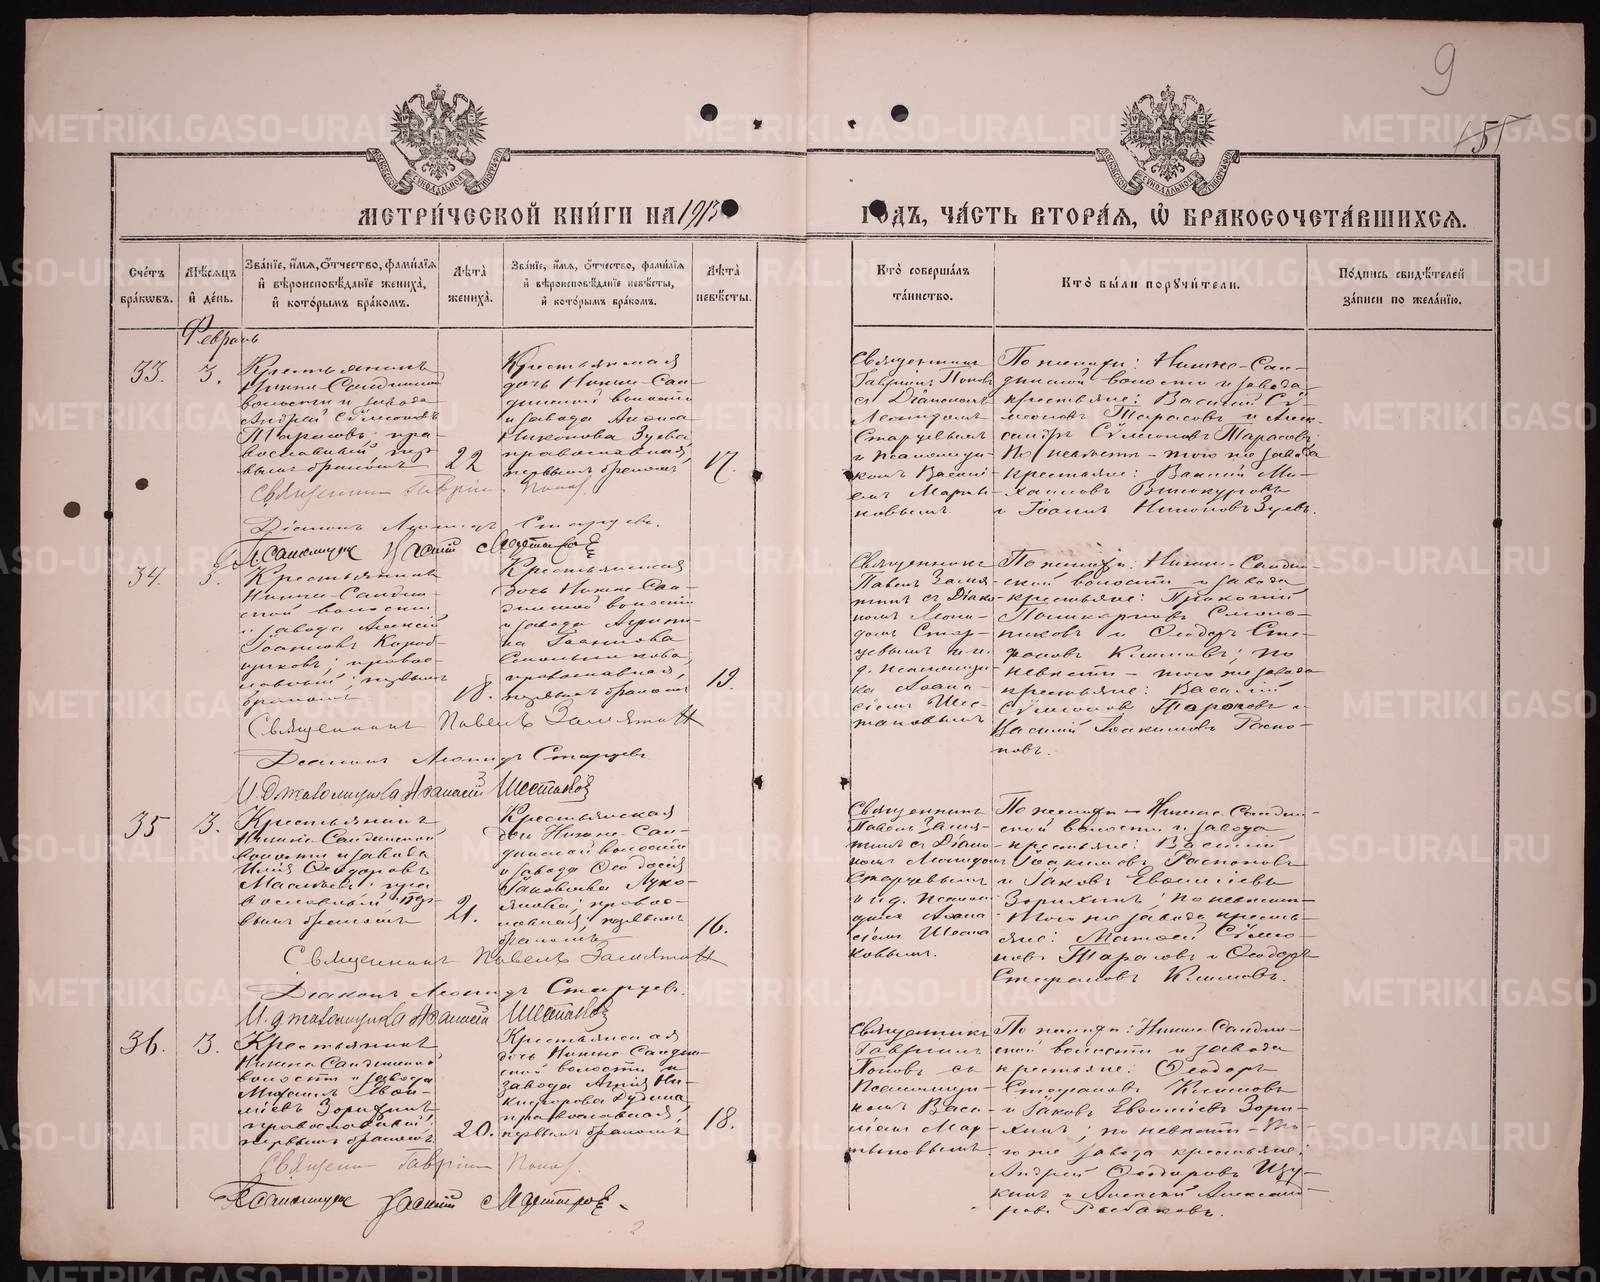 9
155
МОСКОВСКОЙ СѴНОДАЛЬНОЙ ТИПОГРАФІИ
МОСКОВСКОЙ СѴНОДАЛЬНОЙ ТИПОГРАФІИ
МЕТРИ́ЧЕСКОЙ КНИ́ГИ НА 1913
ГОДЪ, ЧА́СТЬ ВТОРА́Я, Ѿ БРАКОСОЧЕТА́ВШИХСЯ.
Сче́тъ бра́кѡвъ.
Мѣ́сяцъ и҆ де́нь.
Зва́нїе, и҆́мя, о҆́тчество, фами́лїя и҆ вѣроисповѣ́данїе жениха̀, и҆ кото́рымъ бра́комъ.
Лѣ́та жениха̀.
Зва́нїе, и҆́мя, о҆́тчество, фами́лїя и҆ вѣроисповѣ́данїе невѣ́сты, и҆ кото́рымъ бра́комъ.
Лѣ́та невѣ́сты.
Кто̀ соверша́лъ та́инство.
Кто̀ бы́ли порꙋчи́тели.
По́дпись свидѣ́телей за́писи по жела́нїю.
Февраль
33.
3.
Крестьянинъ
Нижне-Салдинской
волости и завода
Андрей Сѵмеоновъ
Тарасовъ, пра-
вославный, пер-
вымъ бракомъ
22
Крестьянская
дочь Нижне-Сал-
динской волости
и завода Анна
Никонова Зуева,
православная,
первымъ бракомъ
17.
Священникъ
Гавріилъ Поповъ
съ Діакономъ
Леонидомъ
Старцевымъ
и Псаломщи-
комъ Васи-
емъ Марты-
новымъ.
По женихѣ: Нижне-Сал-
динской волости и завода
крестьяне: Василій Сѵ-
меоновъ Тарасовъ и Алек-
сандръ Сѵмеоновъ Тарасовъ.
По невѣстѣ – того же завода
крестьяне:
Ми-
хаиловъ Винокуровъ
и Іоаннъ Никоновъ Зуевъ.
Священникъ Гавріилъ Поповъ.
Діаконъ Леонидъ Старцевъ.
Псаломщикъ Василій Мартыновъ
34.
3.
Крестьянинъ
Нижне-Салдин-
ской волости
и завода Алексій
Іоанновъ Короб-
щиковъ, правос-
лавный, первымъ
бракомъ
18.
Крестьянская
дочь Нижне-Сал-
динской волости
и завода
Іоаннова
Смольникова,
православная,
первымъ бракомъ
19.
Священникъ
Павелъ Замя-
тинъ съ Діако-
номъ Леони-
домъ Стар-
цевымъ и и.
д. псаломщи-
ка Аѳана-
сіемъ Шес-
таковымъ
По женихѣ: Нижне-Салдин-
ской волости и завода
крестьяне: Прокопій
Поликарповъ Смоль-
никовъ и Ѳеодоръ Сте-
фановъ Климовъ; по
невѣстѣ – того же завода
крестьяне: Василій
Сѵмеоновъ Тарасовъ и
Василій Іоакимовъ Распо-
повъ.
Священникъ Павелъ Замятинъ
Діаконъ Леонидъ Старцевъ
И. д. псаломщика Аѳанасій Шестаковъ
35
3.
Крестьянинъ
Нижне-Салдинской
волости и завода
Илія Ѳеодоровъ
пра-
вославный, пер-
вымъ бракомъ
21.
Крестьянская
дочь Нижне-Сал-
динской волости
и завода Ѳеодосія
Іаковлева Луко-
янова, правос-
лавная, первымъ
бракомъ
16.
Священникъ
Павелъ Замя-
тинъ съ Діако-
номъ Леонидомъ
Старцевымъ
и и. д. Псалом-
щика Аѳана-
сіемъ Шеста-
ковымъ.
По женихѣ – Нижне-Салдин-
ской волости и завода
крестьяне: Василій
Іоакимовъ Распоповъ
и Іаковъ Евѳиміевъ
Зорихинъ; по невѣстѣ –
того же завода кресть-
яне: Матѳей Сѵмео-
новъ Тарасовъ и Ѳеодоръ
Стефановъ Климовъ.
Священникъ Павелъ Замятинъ
Діаконъ Леонидъ Старцевъ.
И. д. псаломщика Аѳанасій Шестаковъ
36.
3.
Крестьянинъ
Нижне-Салдинской
волости и завода
Михаилъ Евѳи-
міевъ Зорихинъ,
православный,
первымъ бракомъ
20.
Крестьянская
дочь Нижне-Салдин-
ской волости и
завода
Ни-
кифорова Дудина,
православная,
первымъ бракомъ
18.
Священникъ
Гавріилъ
Поповъ съ
Псаломщи-
комъ Васи-
ліемъ Мар-
тыновымъ
По женихѣ: Нижне-Салдин-
ской волости и завода
крестьяне: Ѳеодоръ
Стефановъ Климовъ
и Іаковъ Евѳиміевъ Зори-
хинъ; по невѣстѣ – то-
го же завода крестьяне:
Андрей Ѳеодоровъ Щу-
кинъ и Алексѣй Александ-
ровъ Рыбаковъ.
Священникъ Гавріилъ Поповъ.
Псаломщикъ Василій Мартыновъ.
METRIKI.GASO-URAL.RU